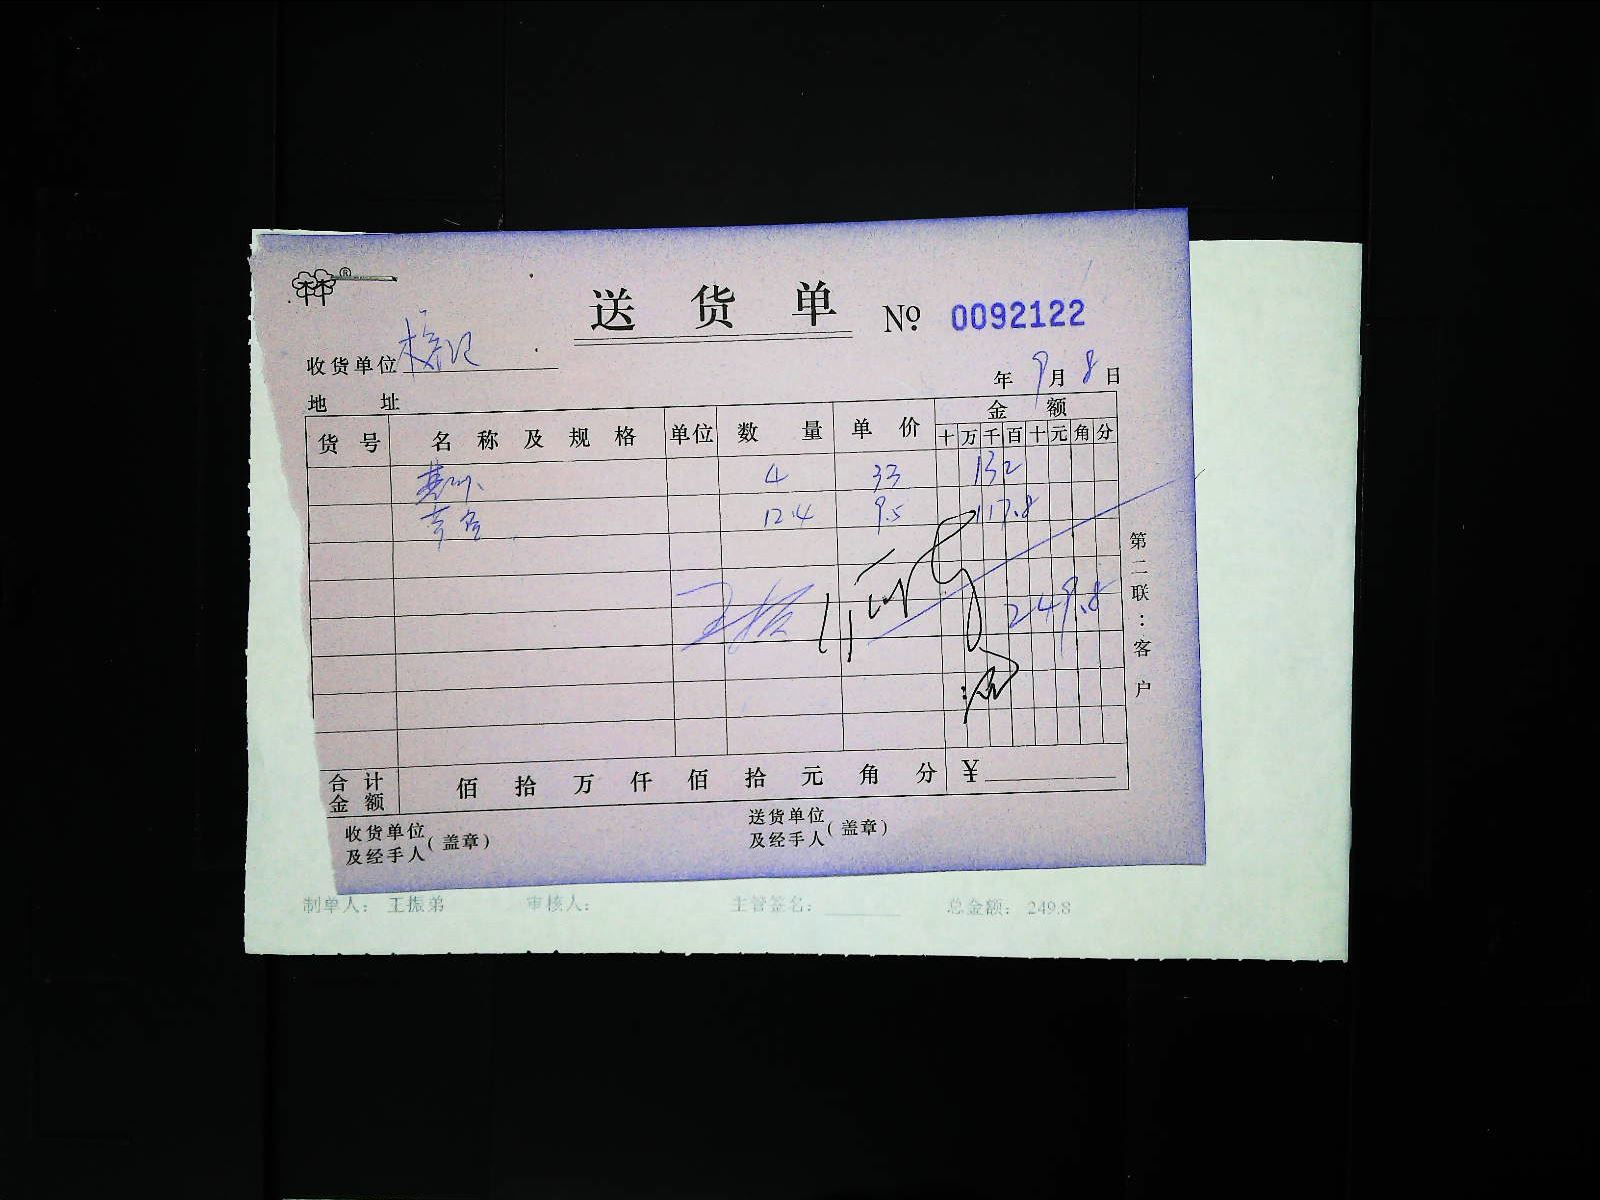 ®
送 货 单 № 0092122
收货单位 榕记
年 9月 8日
地 址
货 号 名 称 及 规 格 单位 数 量 单 价 金 额
十万千百十元角分
4 33 132
12.4 9.5 117.8
王振
249.8
合 计 金 额 佰 拾 万 仟 佰 拾 元 角 分 ¥
收货单位及经手人(盖章) 送货单位及经手人(盖章)
第二联:客户
制单人: 王振弟 审核人: 主管签名: 总金额: 249.8